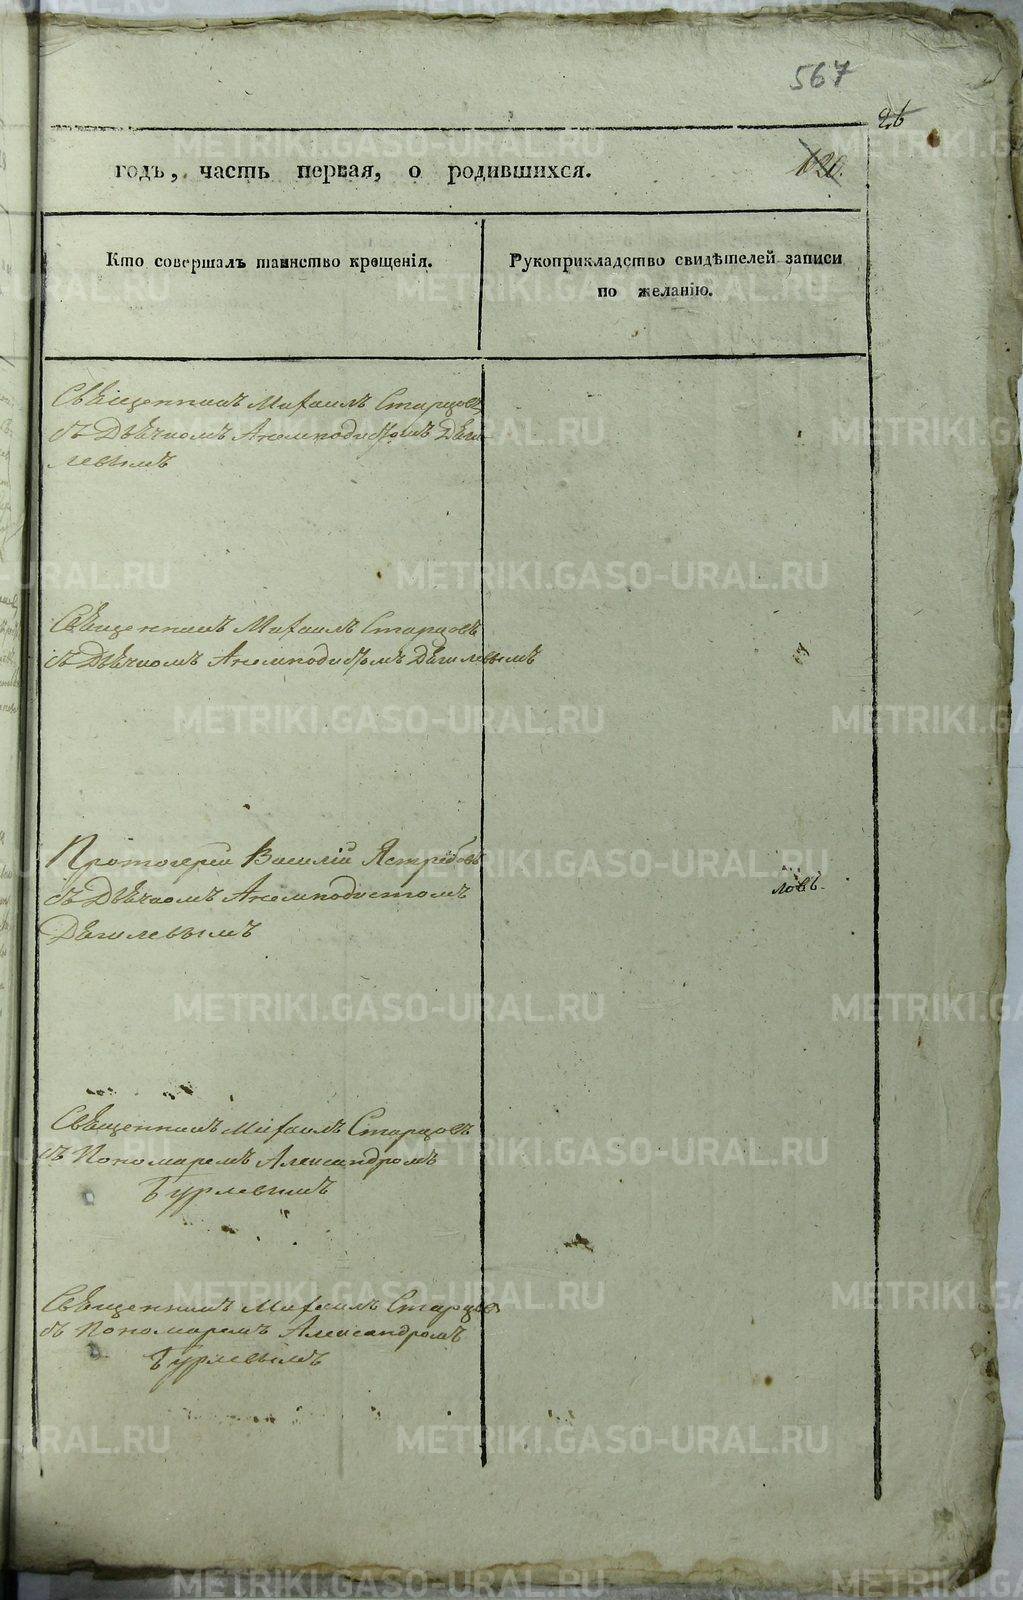 567
26
120.
годъ, часть первая, о родившихся.
Кто совершалъ таинство крещенія.
Рукоприкладство свидѣтелей записи
по желанію.
Священникъ Михаилъ Старцовъ
съ Дьячкомъ Анемподистомъ Дяги-
левымъ
Священникъ Михаилъ Старцовъ
съ Дьячкомъ Анемподистомъ Дягилевымъ
Протоіерей Василій Ястребовъ
съ Дьячкомъ Анемподистомъ
Дягилевымъ
ловъ.
Священникъ Михаилъ Старцовъ
съ Пономаремъ Александромъ
Бурлевымъ
Священникъ Михаилъ Старцовъ
съ Пономаремъ Александромъ
Бурлевымъ
METRIKI.GASO-URAL.RU